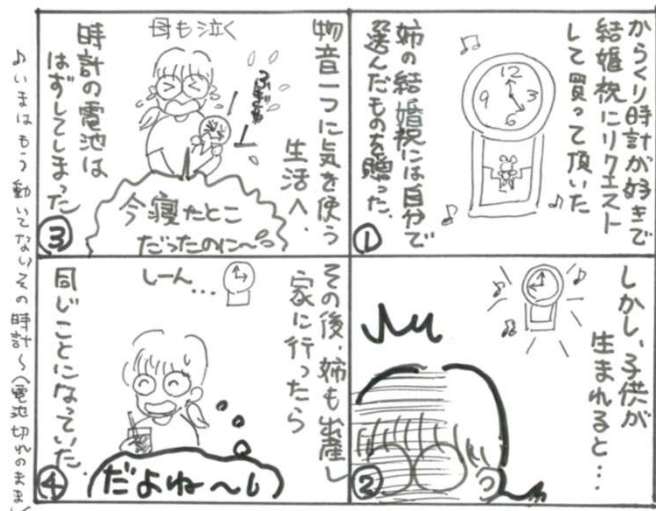 からくり時計が好きで
結婚祝にリクエスト
して買って頂いた
12
9
3
6
姉の結婚祝には自分で
選んだものを贈った。
①
しかし、子供が
生まれると…
②
物音一つに気を使う
生活へ.
母も泣く
時計の電池は
はずしてしまった
今寝たとこ
だったのに〜
③
その後、姉も出産し
家に行ったら
しーん…
同じことになっていた。
だよね〜
④
♪いまはもう動いてないその時計〜(電池切れのまま)